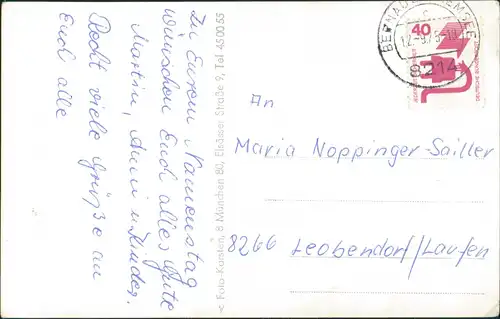 Zu Eurem Namenstag
wünschen Euch alles Gute
Martin, Anni u. Kinder.
Recht viele Grüße an
Euch alle
Foto-Kunstein, 8 München 80, Elsässer Straße 9, Tel. 45 00 65
BERNAU
12.-9.75-18
8214
40
DEUTSCHE BUNDESPOST
An
Maria Noppinger-Sailler
8266 Leobendorf/Laufen